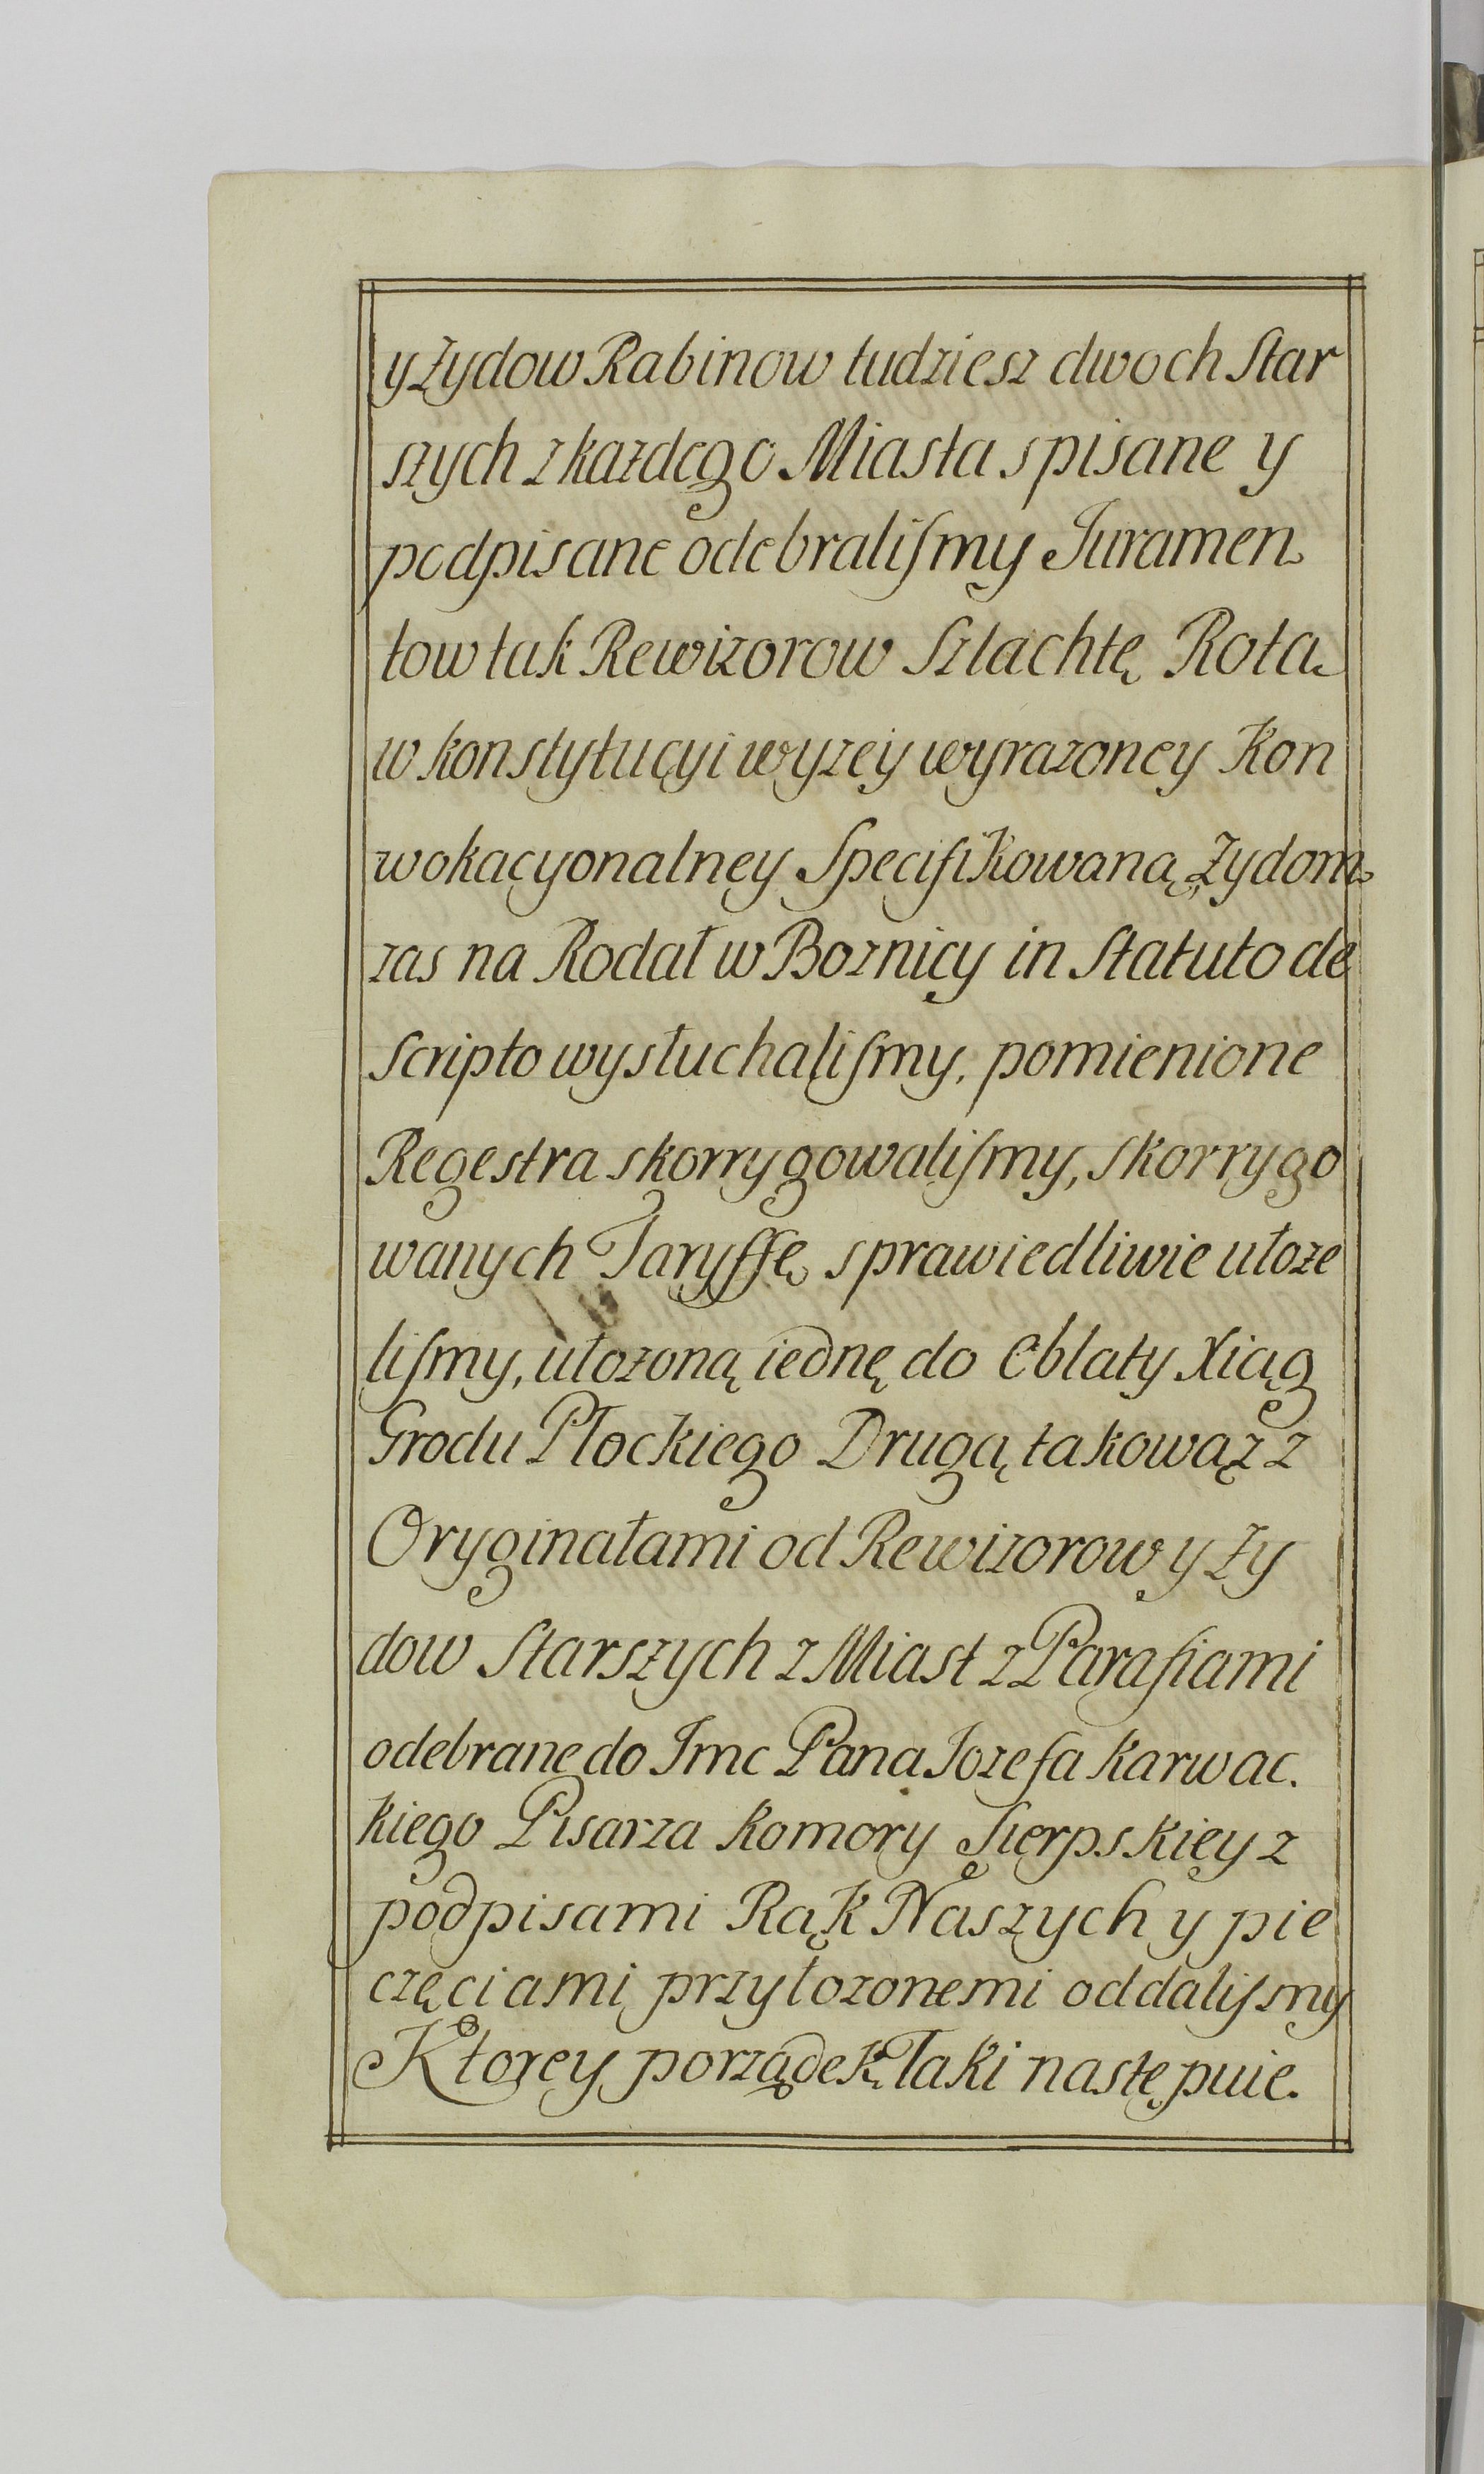 y Żydow Rabinow tudziesz dwoch Star
szych z kazdego Miasta spisane y
podpisane odebraliſmy Juramen
tow tak Rewizorow Szlachtę Rota
w konstytucyi wyzey wyrazoney Kon
wokacyonalney Specifikowaną, Żydom
zas na Rodał w Boznicy in Statuto de
scripto wysłuchaliſmy, pomienione
Regestra skorrygowaliſmy, skorrygo
wanych Taryffę sprawiedliwie ułoze
liſmy, ułozoną iednę do Oblaty Xiąg
Grodu Płockiego Drugą takowąz z
Oryginałami od Rewizorow y Ży
dow Starszych z Miast z Parafiami
odebrane do Jmc Pana Jozefa Karwac.
kiego Pisarza Komory Sierpskiey z
podpisami Rąk Naszych y pie
częciami przyłozonemi oddaliſmy
Ktorey porządek Taki następuie.